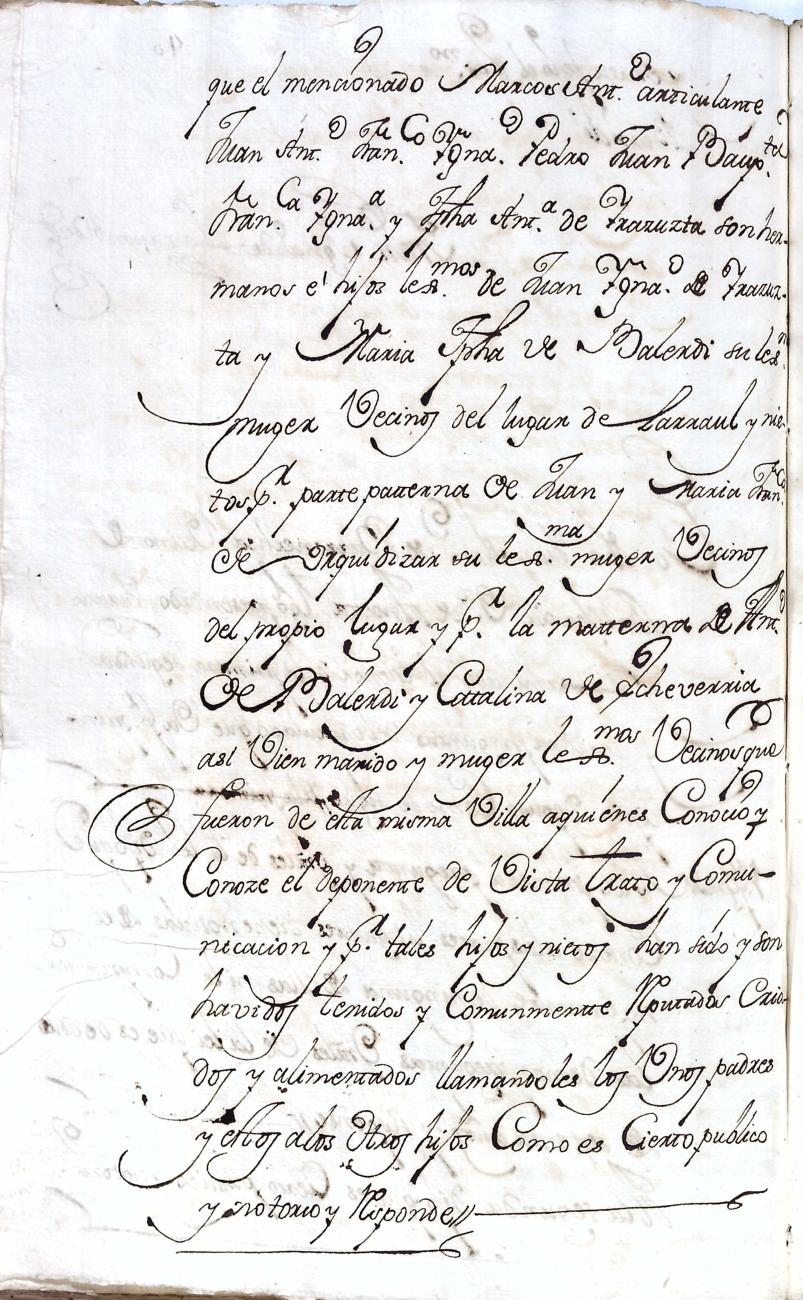 que el mencionado Marcos Ant.º articulante
Juan Ant.º Fran.co Ygna.º Pedro Juan Baup.ta
Fran.ca Ygna.a y Jpha Ant.a de Yrazuzta son her-
manos e hijos lex.mos de Juan Ygna.º de Yrazuz-
ta y Maria Jpha de Balerdi su lex.
muger Vecinos del lugar de Larraul y nie-
tos p.r parte patterna de Juan y Maria Fran.ca
de Orquidizar su lex.ma muger Vecinos
del propio lugar y p.r la matterna de Ant.º
de Balerdi y Catalina de Echeverria
asi Vien marido y muger lex.mos Vecinos que
fueron de esta misma Villa aquiénes Conocio y
Conoze el deponente de Vista trato y Comu-
nicacion y p.r tales hijos y nietos han sido y son
havidos tenidos y Comunmentte Reputados Cria-
dos y alimentados llamandoles los Unos padres
y estos alos Otros hijos Como es Cierto publico
y notorio y Responde//